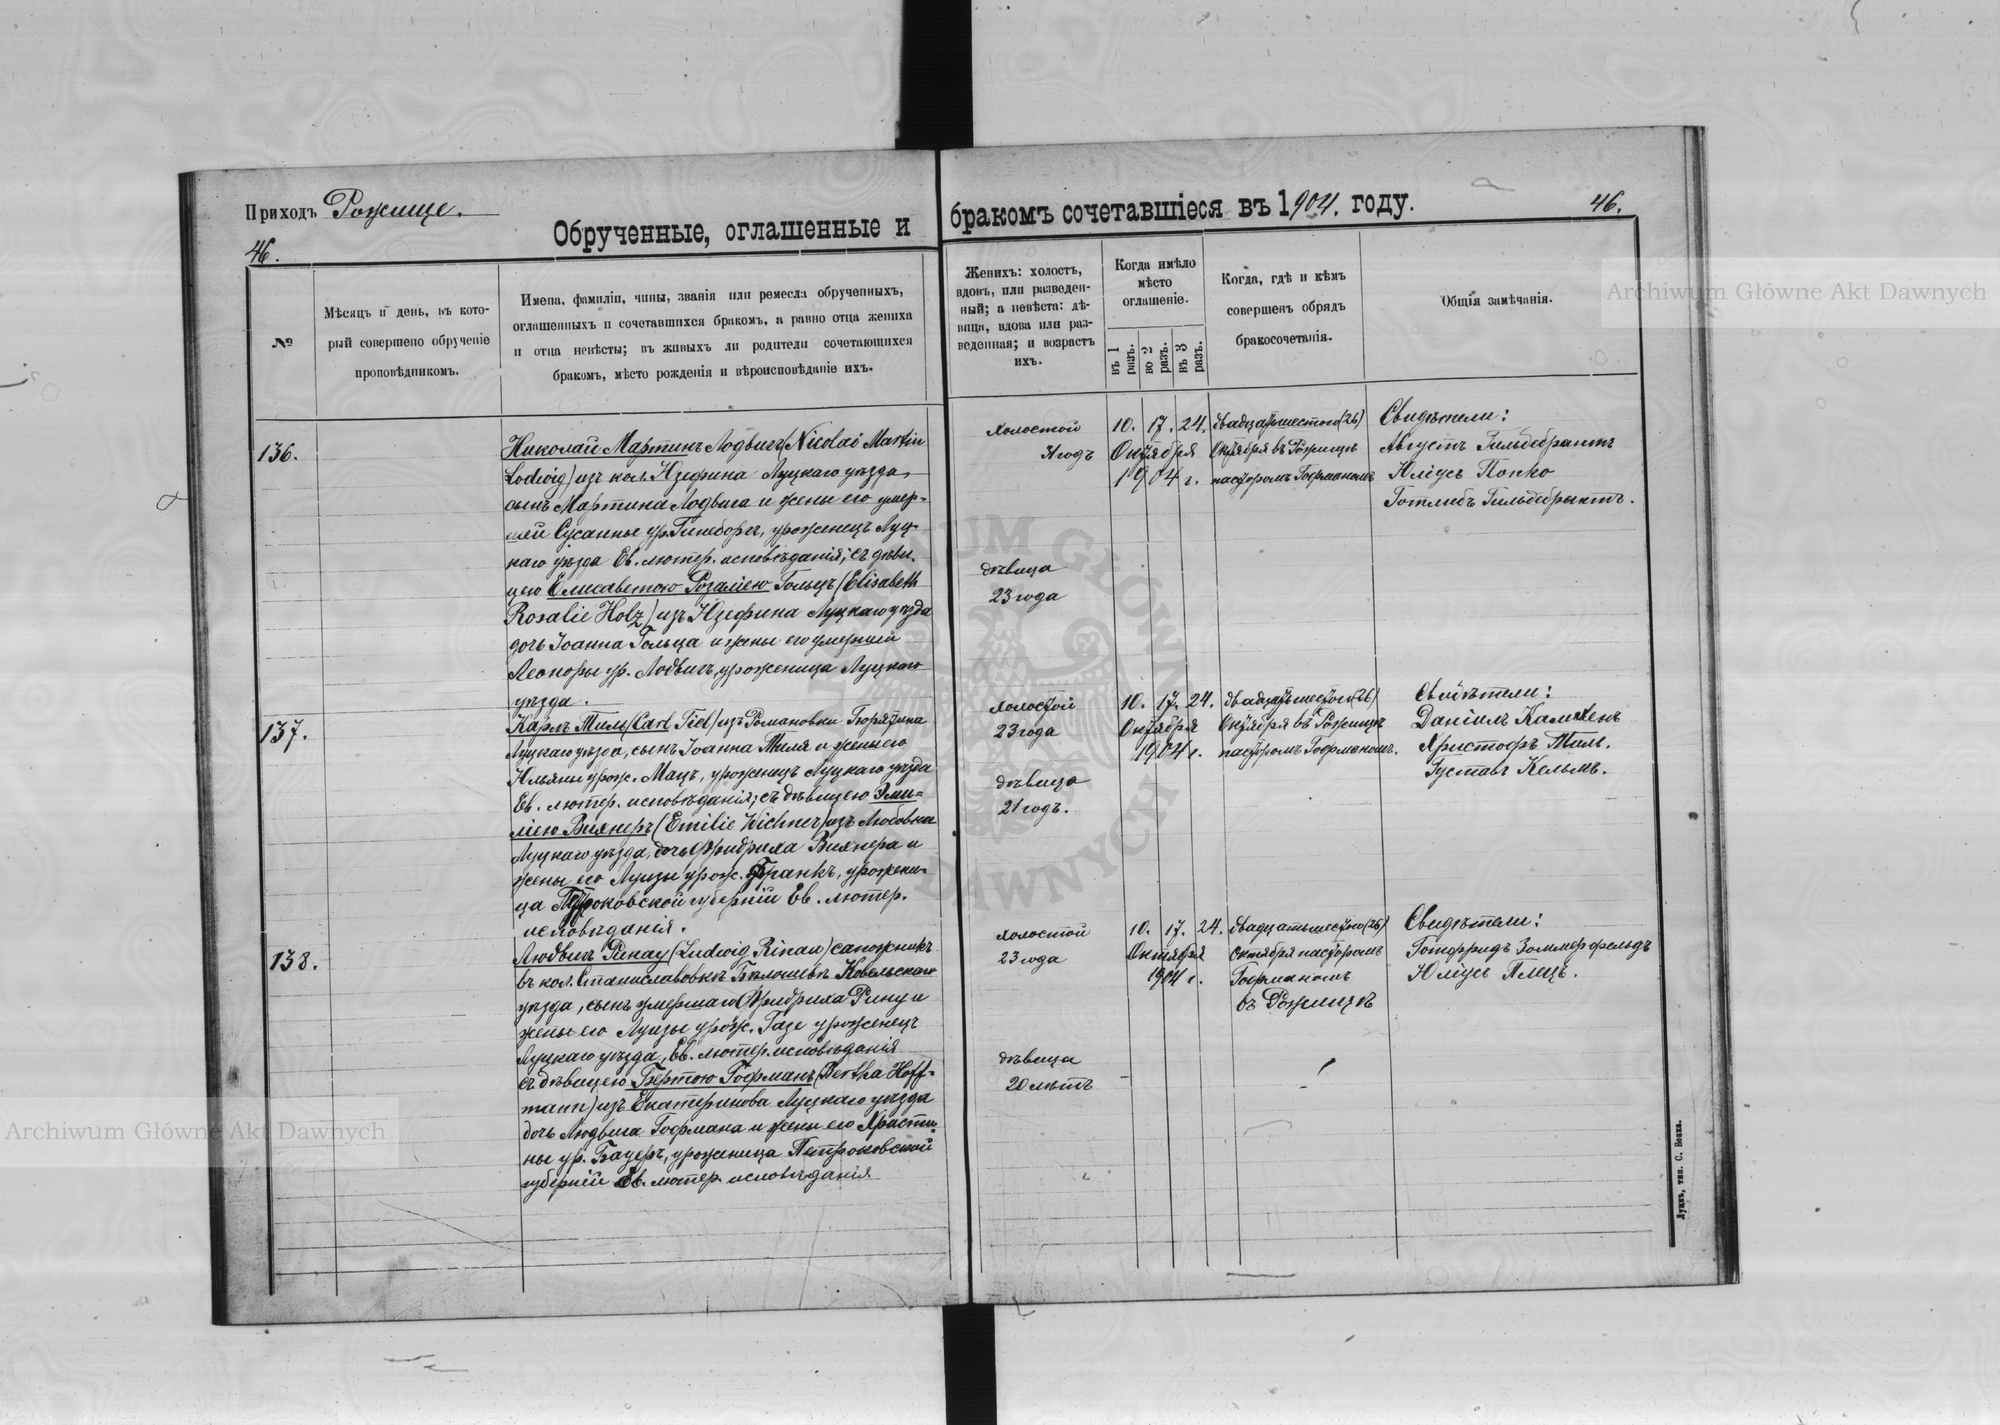 Приходъ Рожище.
46.
Обрученные, оглашенные и
бракомъ сочетавшіеся въ 1904. году.
46.
№
Мѣсяцъ и день, въ кото-
рый совершено обрученіе
проповѣдникомъ.
Имена, фамиліи, чины, званія или ремесла обрученныхъ,
оглашенныхъ и сочетавшихся бракомъ, а равно отца жениха
и отца невѣсты; въ живыхъ ли родители сочетающихся
бракомъ, мѣсто рожденія и вѣроисповѣданіе ихъ.
Женихъ: холостъ,
вдовъ, или разведен-
ный; а невѣста: дѣ-
вица, вдова или раз-
веденная; и возрастъ
ихъ.
Когда имѣло
мѣсто
оглашеніе.
въ 1 разъ.
во 2 разъ.
въ 3 разъ.
Когда, гдѣ и кѣмъ
совершенъ обрядъ
бракосочетанія.
Общія замѣчанія.
136.
Николай Мартинъ Лодвигъ (Nicolai Martin
Lodwig) изъ кол. Юзефина Луцкаго уѣзда,
сынъ Мартина Лодвига и жены его умер-
шей Сусанны ур. Гинборъ, уроженецъ Луц-
каго уѣзда Ев. лютер. исповѣданія; съ дѣви-
цею Елисаветою Розаліею Гольцъ (Elisabeth
Rosalie Holz) изъ Юзефина Луцкаго уѣзда
дочь Іоанна Гольца и жены его умершей
Леоноры ур. Лодвигъ, уроженица Луцкаго
уѣзда.
холостой
31 годъ
дѣвица
23 года
10. 17. 24.
Октября
1904 г.
двадцатьшестого (26)
Октября въ Рожищѣ
пасторомъ Гофманомъ
Свидѣтели:
Августъ Гильдебрантъ
Юліусъ Попко
Готлибъ Гильдебрантъ.
137.
Карлъ Тиль (Carl Tiel) изъ Романовки
Луцкаго уѣзда, сынъ Іоанна Тиля и жены его
Юльяны урож. Мацъ, уроженецъ Луцкаго уѣзда
Ев. лютер. исповѣданія; съ дѣвицею Эми-
ліею Вихнеръ (Emilie Wichner) изъ Любовки
Луцкаго уѣзда, дочь Фридриха Вихнера и
жены его Луизы урож. Франкъ, урожени-
ца Петроковской губерніи Ев. лютер.
исповѣданія.
холостой
23 года
дѣвица
21 годъ.
10. 17. 24.
Октября
1904 г.
двадцатьшестого (26)
Октября въ Рожищѣ
пасторомъ Гофманомъ.
Свидѣтели:
Даніилъ
Христофъ Тиль.
Густавъ Кельмъ.
138.
Людвигъ Ринау (Ludwig Rinau) сапожникъ
въ кол. Станиславовкѣ Ковельскаго
уѣзда, сынъ умершаго Фридриха Ринау и
жены его Луизы урож. Газе уроженецъ
Луцкаго уѣзда, Ев. лютер. исповѣданія
съ дѣвицею Бертою Гофманъ (Bertha Hoff-
mann) изъ Екатеринова Луцкаго уѣзда
дочь Людвига Гофмана и жены его Христи-
ны ур. Бауеръ, уроженица Петроковской
губерніи Ев. лютер. исповѣданія.
холостой
23 года
дѣвица
20 лѣтъ
10. 17. 24.
Октября
1904 г.
двадцатьшестого (26)
Октября пасторомъ
Гофманомъ
въ Рожищѣ
Свидѣтели:
Готфридъ Зоммерфельдъ
Юліусъ Плецъ.
Луцкъ, тип. С. Бонка.
Archiwum Główne Akt Dawnych
Archiwum Główne Akt Dawnych